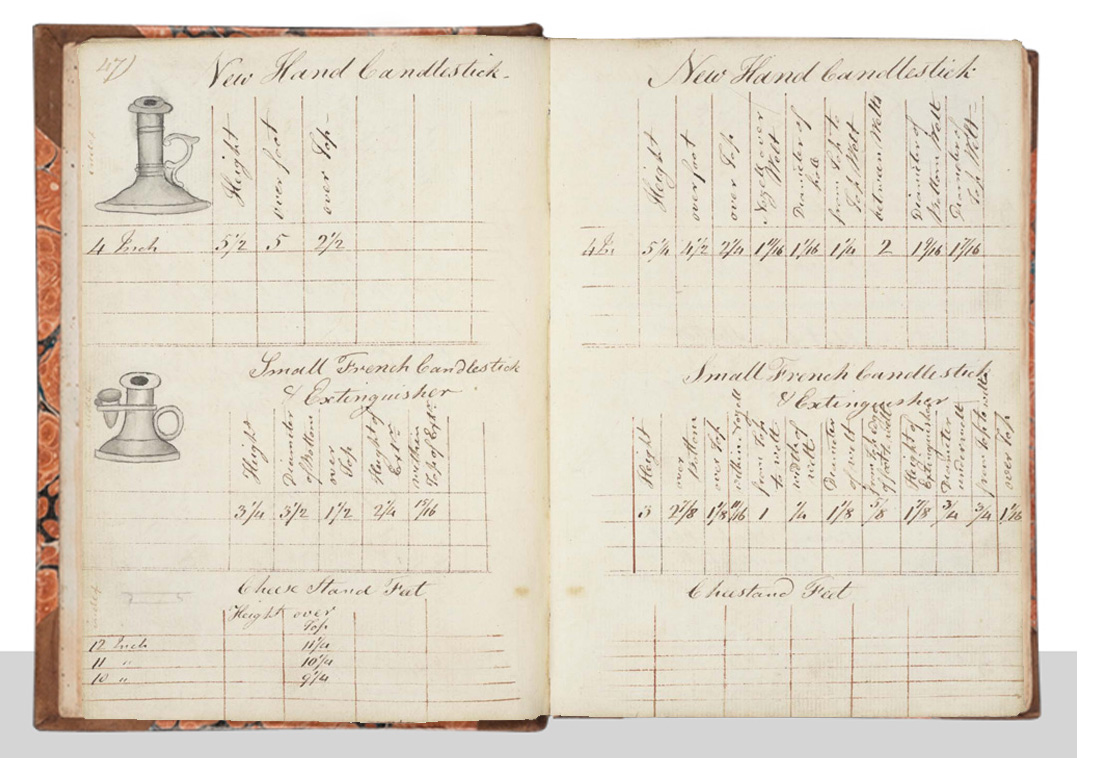 47)
New Hand Candlestick.
Height
over foot
over Top
4 Inch 5 1/2 5 2 1/2
Small French Candlestick
& Extinguisher
Height
Diameter of Bottom
over Top
Height of Extr.
within Top of Extr.
3 1/4 3 1/2 1 1/2 2 1/4 15/16
Cheese Stand Feet
Height over
Top
12 Inch 11 1/4
11 " 10 1/4
10 " 9 1/4
New Hand Candlestick
Height
over foot
over Top
over Welt
Diameter of hole
from Top to Top Welt
between Welts
Diameter of Bottom Welt
Diameter of Top Welt
4 In 5 1/4 4 1/2 2 1/4 1 1/4 2
Small French Candlestick
& Extinguisher
Height
over Bottom
over Top
within
from Top to welt
width of welt
Diameter of welt
from Top
Height of Extinguisher
Diameter under welt
from top to welt
over Top
3 2 7/8 1 1/8 1 1/4 1 1/8 5/8 1 7/8 3/4 3/4 1 1/16
Cheestand Feet